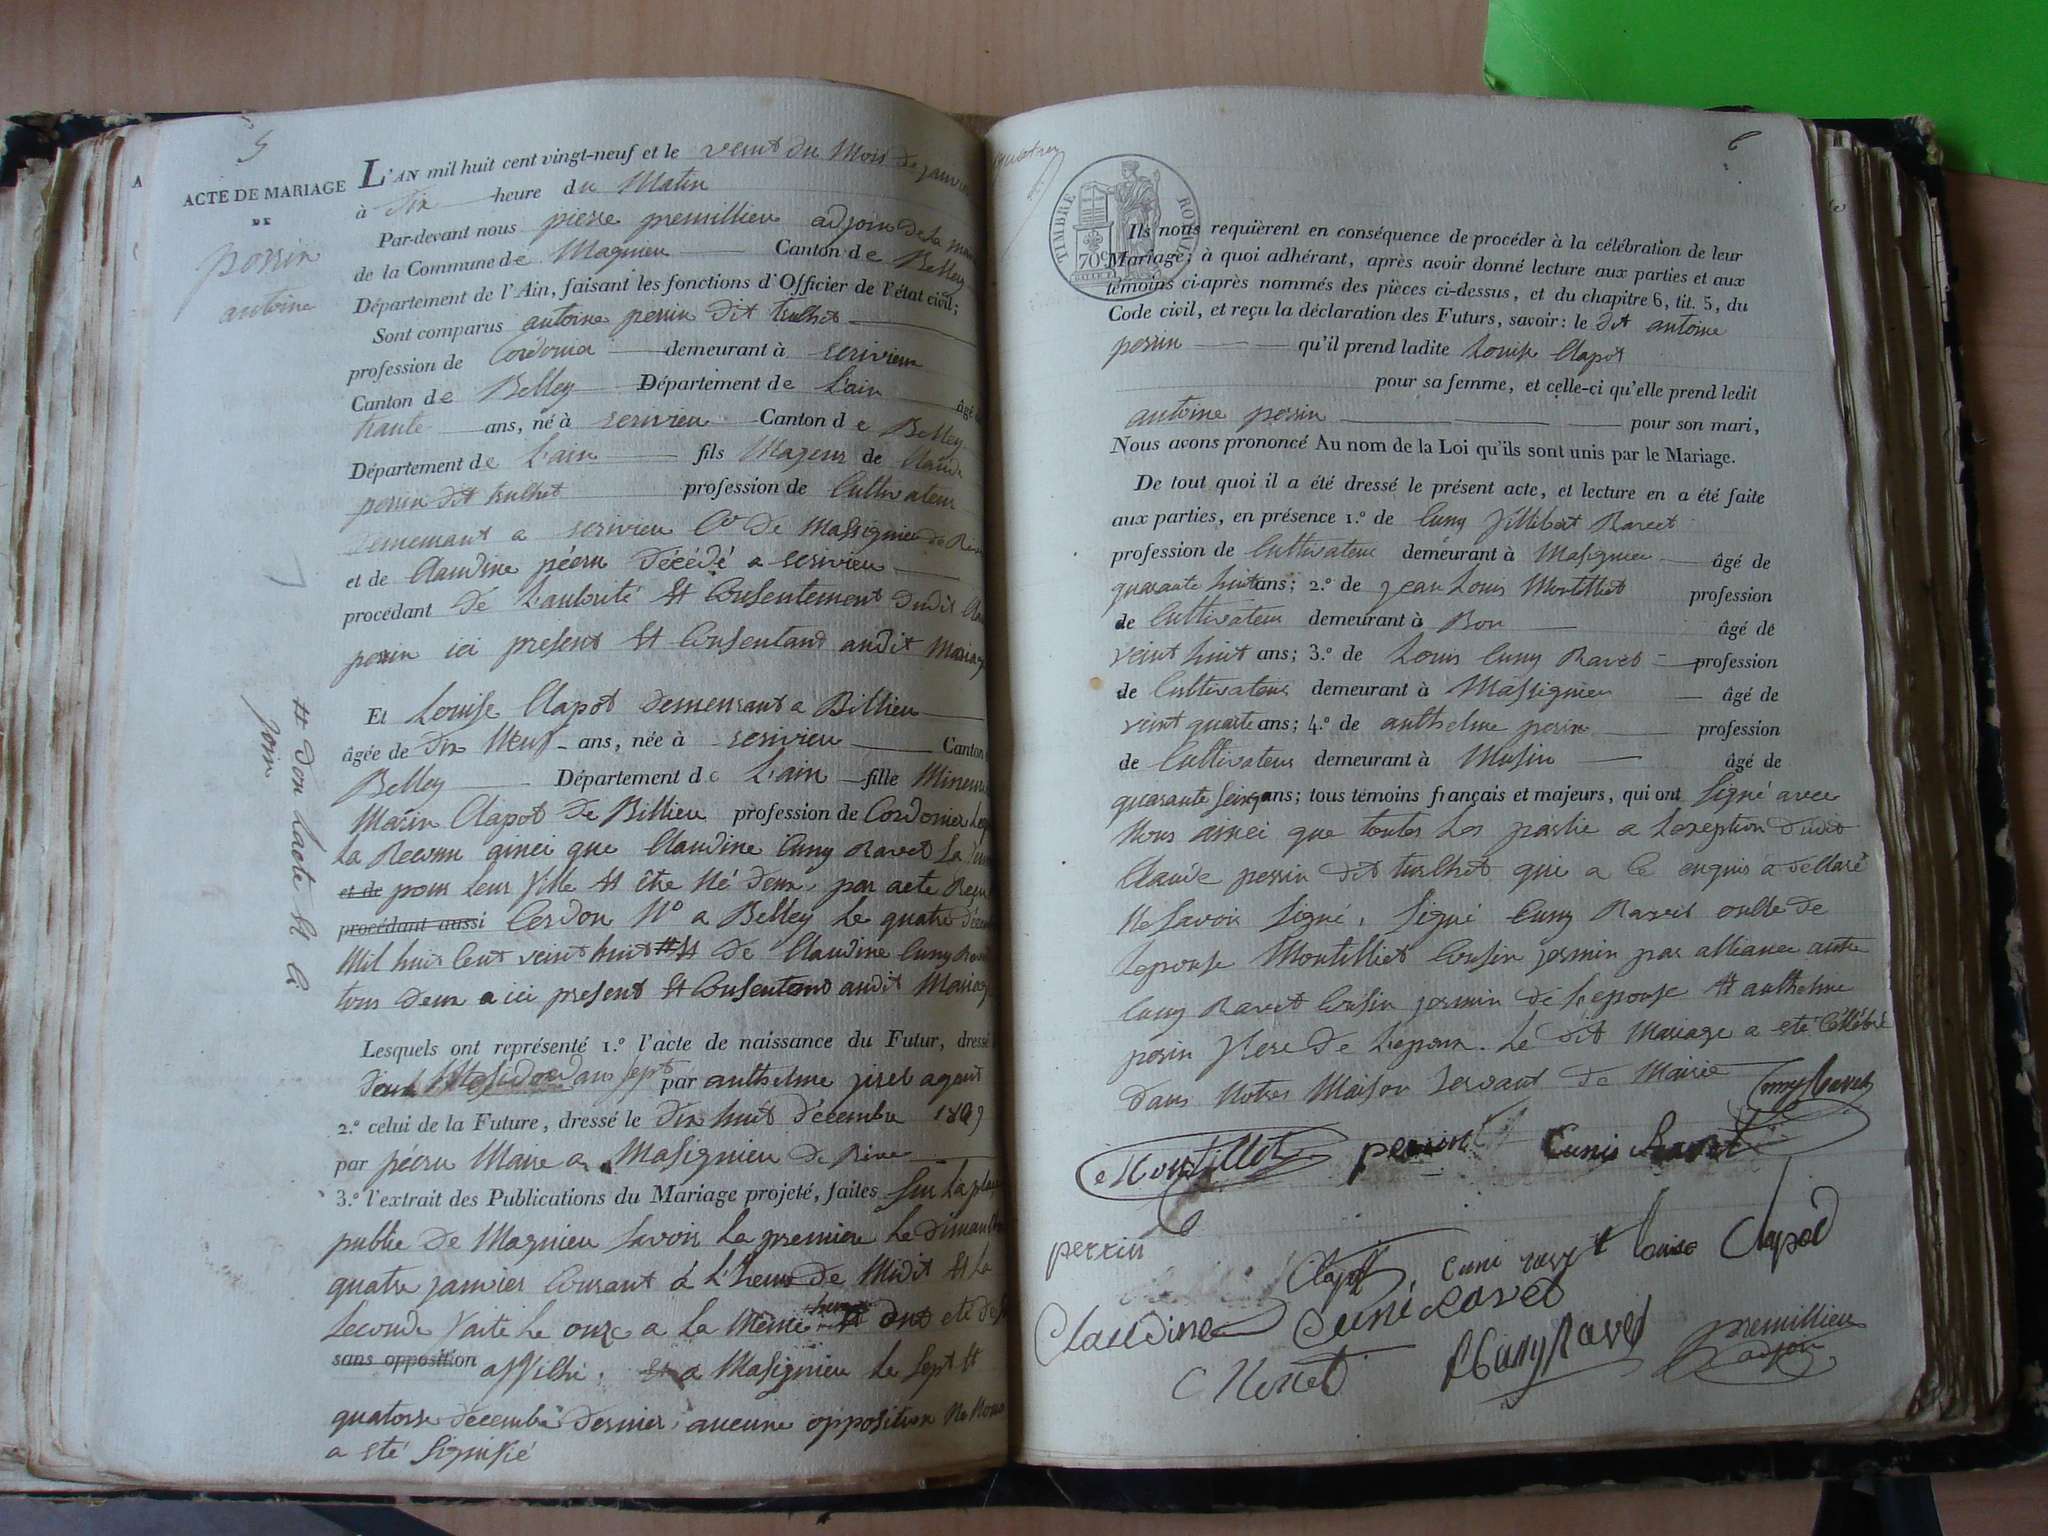 5
ACTE DE MARIAGE
DE
perrin
antoine
L'AN mil huit cent vingt-neuf et le veint du Mois de janvier
à Dix heure du Matin
Par-devant nous pierre premillieu adjoin de la mairie
de la Commune de Magnieu Canton de Belley
Département de l'Ain, faisant les fonctions d'Officier de l'état civil;
Sont comparus antoine perrin dit trulhet
profession de Cordonier demeurant à serivieu
Canton de Belley Département de L'ain âgé de
trante ans, né à serivieu Canton de Belley
Département de L'ain fils Majeur de Claude
perrin dit trulhet profession de Cultivateur
demeurant a serivieu Cne de Massignieu de Rives
et de Claudine pécru décédé a serivieu
procédant de L'autorité et Consentement dudit Claude
perrin ici present et Consentand audit Mariage
Et Louise Clapot demeurant a Billieu
âgée de Dix Neuf ans, née à serivieu Canton
Belley Département de L'ain fille Mineure
Marin Clapot de Billieu profession de Cordonier
La Reconu ainci que Claudine Cuny Ravet sa
et de pour Leur fille et être Né deux, par acte Reçu
procédant aussi Cerdon No a Belley Le quatre décembre
Mil huit Cent veint huit # et de Claudine Cuny Ravet
tous deux a ici present et Consentand audit Mariage
# don Lacte et Ci
join
Lesquels ont représenté 1.º l'acte de naissance du Futur, dressé
Messidor an sept par anthelme jirel agent
2.º celui de la Future, dressé le dix huit décembre 1809
par pécru Maire a Masignieu de Rive
3.º l'extrait des Publications du Mariage projeté, faites sur La place
public de Magnieu savoir La premiere Le dimanche
quatre janvier Courant à L'heure de Midit et La
seconde faite Le onze a La Même heure ont eté de
sans opposition affiché. et a Masignieu Le sept et
quatorse decembre dernier aucune opposition Ne Nous
a eté signifié
6
TIMBRE ROYAL
70c
Ils nous requièrent en conséquence de procéder à la célébration de leur
Mariage; à quoi adhérant, après avoir donné lecture aux parties et aux
témoins ci-après nommés des pièces ci-dessus, et du chapitre 6, tit. 5, du
Code civil, et reçu la déclaration des Futurs, savoir: le dit antoine
perrin qu'il prend ladite Louise Clapot
pour sa femme, et celle-ci qu'elle prend ledit
antoine perrin pour son mari,
Nous avons prononcé Au nom de la Loi qu'ils sont unis par le Mariage.
De tout quoi il a été dressé le présent acte, et lecture en a été faite
aux parties, en présence 1.º de Cuny fillibert Ravet
profession de Cultivateur demeurant à Masignieu âgé de
quarante huit ans; 2.º de jean Louis Montilliet profession
de Cultivateur demeurant à Bon âgé de
veint huit ans; 3.º de Louis Cuny Ravet profession
de Cultivateur demeurant à Massignieu âgé de
veint quatre ans; 4.º de anthelme perin profession
de Cultivateur demeurant à Musin âgé de
quarante seinq ans; tous témoins français et majeurs, qui ont signé avec
Nous ainci que toutes Les partie a Lexeption dudit
Claude perrin dit trulhet qui a Ce enquis a dellaré
Ne savoir signé, signé Cuny Ravet oncle de
Lepouse Montilliet Cousin jermin par alliance autre
Cuny Ravet Cousin jermin de Lepouse et anthelme
perin frere de Lepoux. Le dit Mariage a eté Célébré
dans Notres Maison servant de Mairie
Cuny Ravet
Montillet perrin Cuni Ravet
perrin
Clapot Cuni ravet louise Clapod
Claudine Cuni Ravet
Cuny Ravet premillieu
adjoin